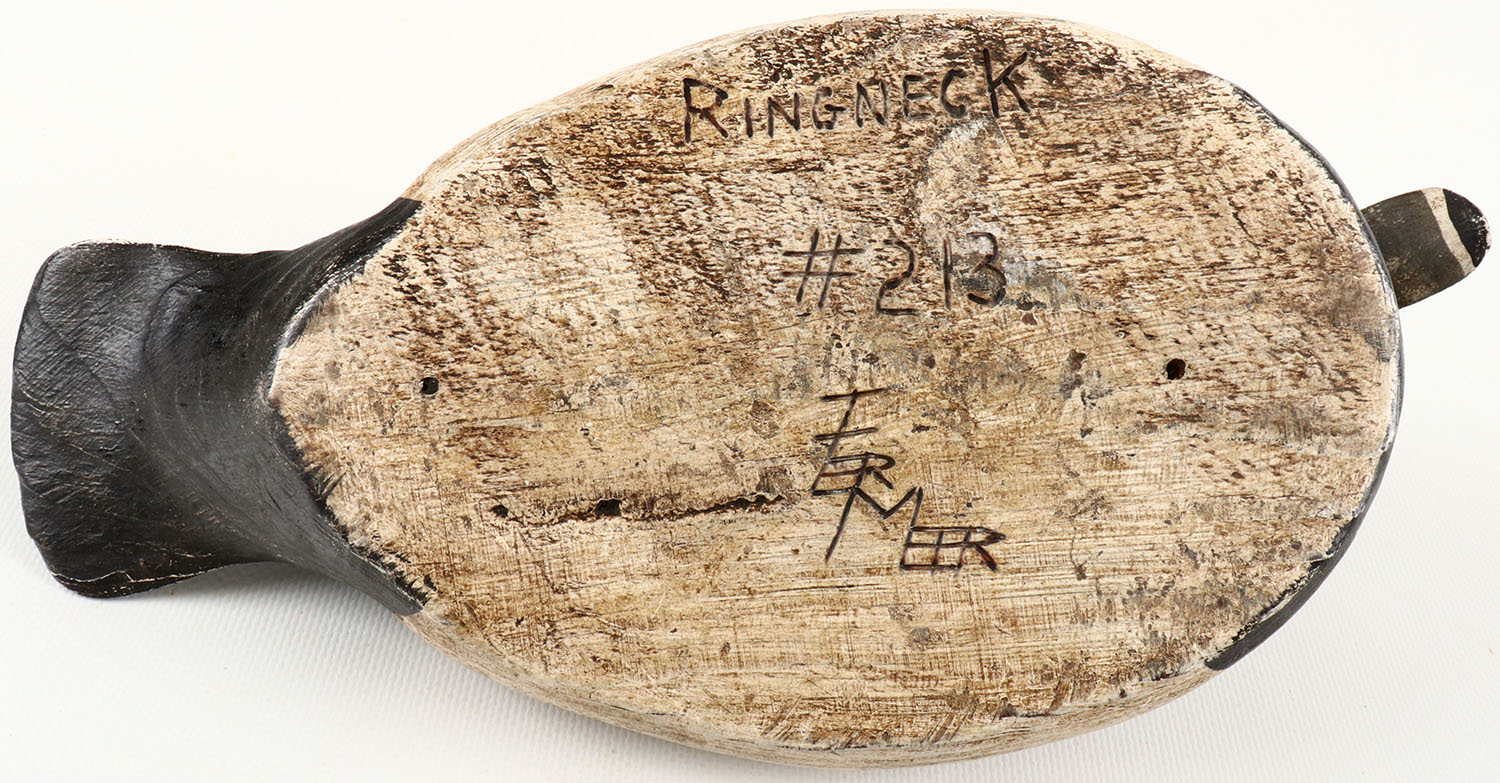 RINGNECK
#213
TERMEER